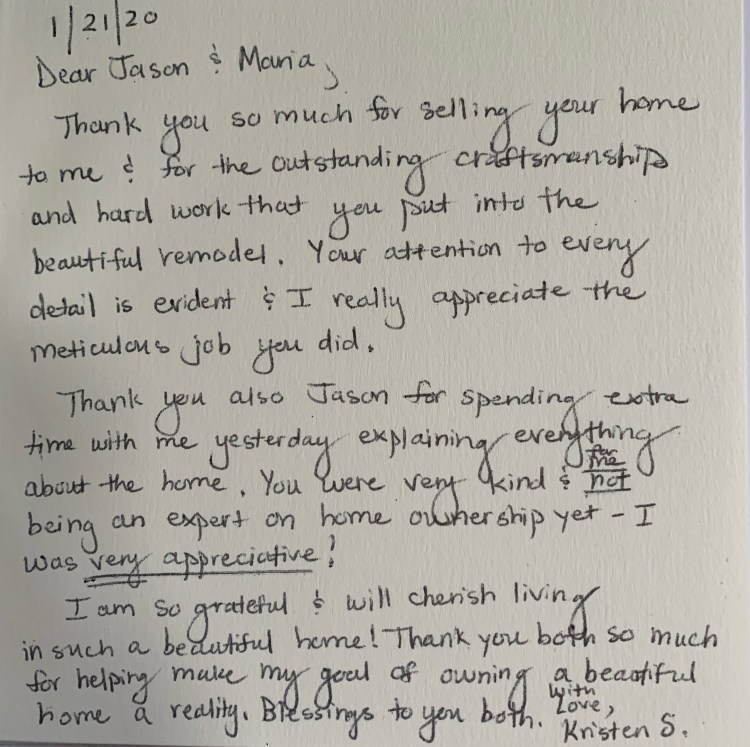 1/21/20
Dear Jason & Maria,
Thank you so much for selling your home
to me & for the outstanding craftsmanship
and hard work that you put into the
beautiful remodel. Your attention to every
detail is evident & I really appreciate the
meticulous job you did.
Thank you also Jason for spending extra
time with me yesterday explaining everything
about the home. You were very kind & for me not
being an expert on home ownership yet - I
was very appreciative!
I am so grateful & will cherish living
in such a beautiful home! Thank you both so much
for helping make my goal of owning a beautiful
home a reality. Blessings to you both.
With
Love,
Kristen S.